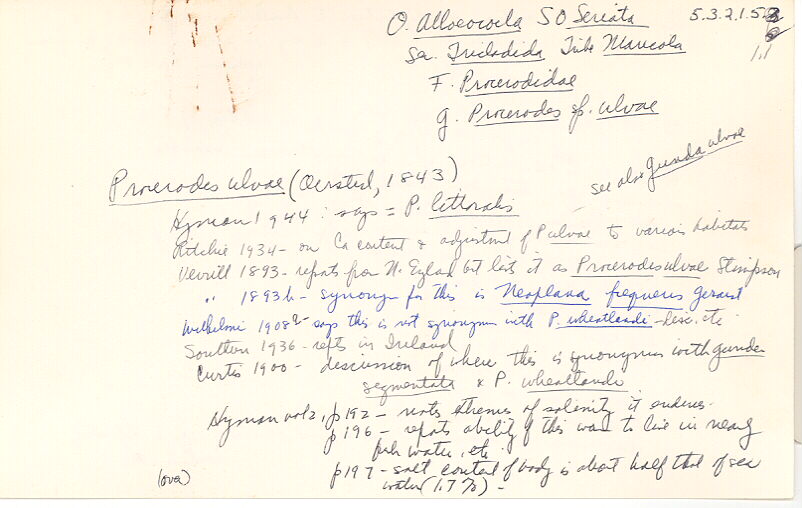 O. Alloeocoela SO Seriata 5.3.2.1.5.3
So. Tricladida Tribe Maricola 1.1
F. Procerodidae
g. Procerodes sp. ulvae
see also Gunda ulvae
Procerodes ulvae (Oersted, 1843)
Hyman 1944: says = P. littoralis
Ritchie 1934 - on Ca content & adjustment of P ulvae to various habitats
Verrill 1893 - reports from N. England but lists it as Procerodes ulvae Stimpson
" 1893b - synonym for this is Neoplana frequens Girard
Wilhelmi 1908 - says this is not synonym with P. wheatlandi - desc. etc
Southern 1936 - repts in Ireland
Curtis 1900 - discussion of where this is synonymous with gunda
segmentata & P. wheatlandi
Hyman vol 2, p 192 - notes extremes of salinity it endures.
p 196 - repts ability of this worm to live in nearly
fresh water, etc.
p 197 - salt content of body is about half that of sea
water (1.7%) -
(over)